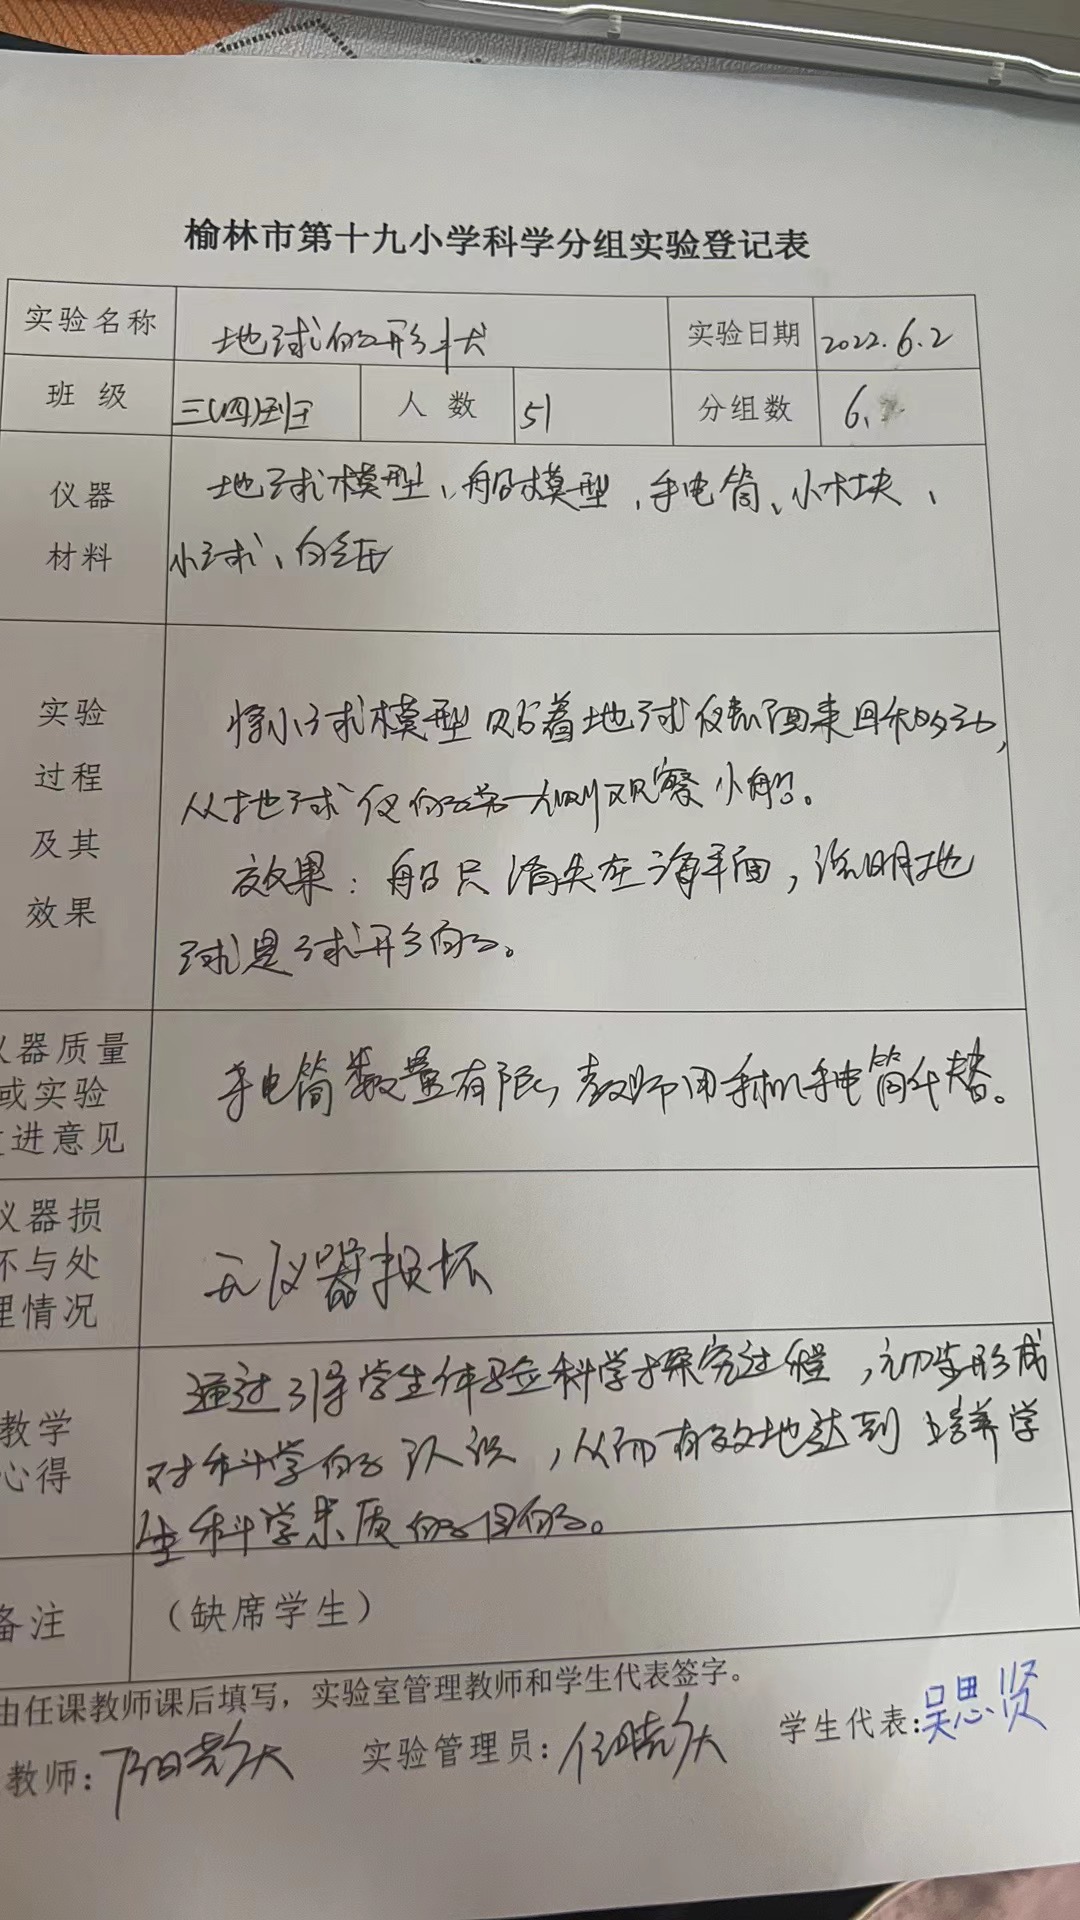 榆林市第十九小学科学分组实验登记表
实验名称 地球的形状 实验日期 2022.6.2
班 级 三(四)班 人 数 51 分组数 6.
仪器
材料
地球模型、船模型、手电筒、小木块、
小球、白纸
实验
过程
及其
效果
将小球模型贴着地球仪表面来回移动,
从地球仪的另一侧观察小船。
效果:船只消失在海平面,说明地
球是球形的。
器质量
或实验
进意见
手电筒数量有限,教师用手机手电筒代替。
仪器损
坏与处
理情况
无仪器损坏
教学
心得
通过引导学生体验科学探究过程,初步形成
对科学的认识,从而有效地达到培养学
生科学素质的目的。
备注 (缺席学生)
由任课教师课后填写,实验室管理教师和学生代表签字。
教师: 实验管理员: 学生代表:吴思贤